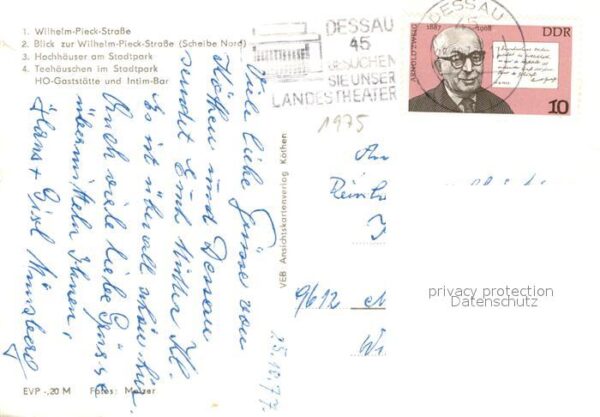 1. Wilhelm-Pieck-Straße
2. Blick zur Wilhelm-Pieck-Straße (Scheibe Nord)
3. Hochhäuser am Stadtpark
4. Teehäuschen im Stadtpark
HO-Gaststätte und Intim-Bar
Viele liebe Grüsse von
Köthen und Dessau
sendet Euch Mutter Kl.
Es ist überall schön hier.
Auch viele liebe Grüsse
übermitteln Ihnen,
Hans + Gisl
EVP -,20 M Fotos: Melzer
VEB Ansichtskartenverlag Köthen
DESSAU
45
BESUCHEN
SIE UNSER
LANDESTHEATER
DESSAU
45
1975
ARNOLD ZWEIG
1887 1968
DDR
10
An
9612
15.10.77
privacy protection
Datenschutz